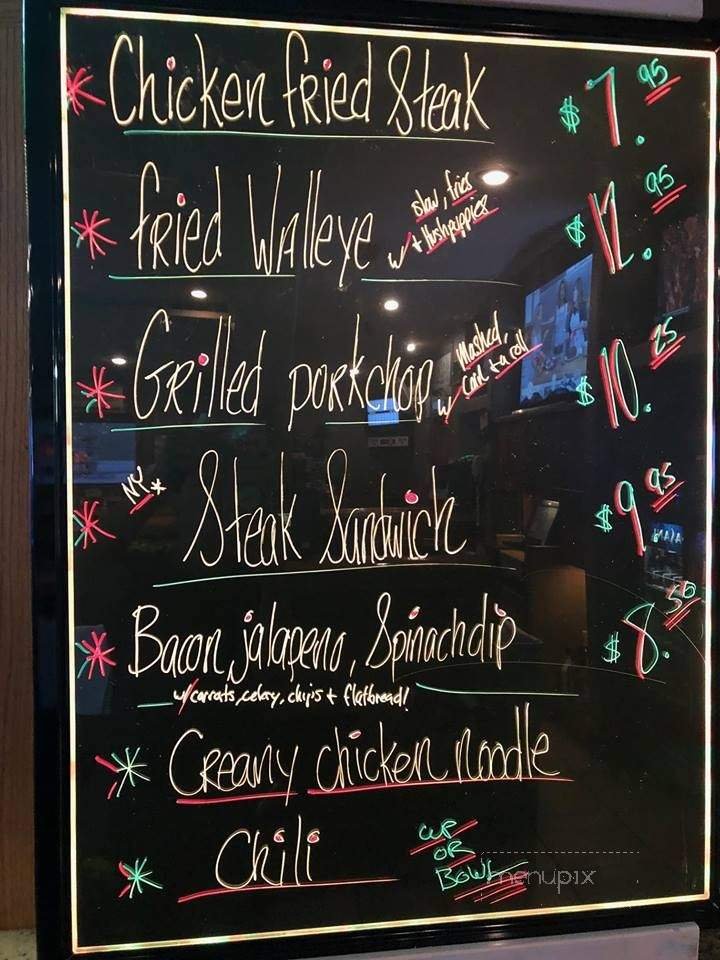 Chicken fried Steak $7.95
fried Walleye w/ slaw, fries + hushpuppies $12.95
Grilled porkchop w/ mashed, corn + a roll $10.25
NY* Steak Sandwich $9.95
Bacon, jalapeno, Spinach dip $8.50
w/carrots, celery, chips + flatbread!
Creamy chicken noodle
Chili
CUP
OR
BOWL
menupix